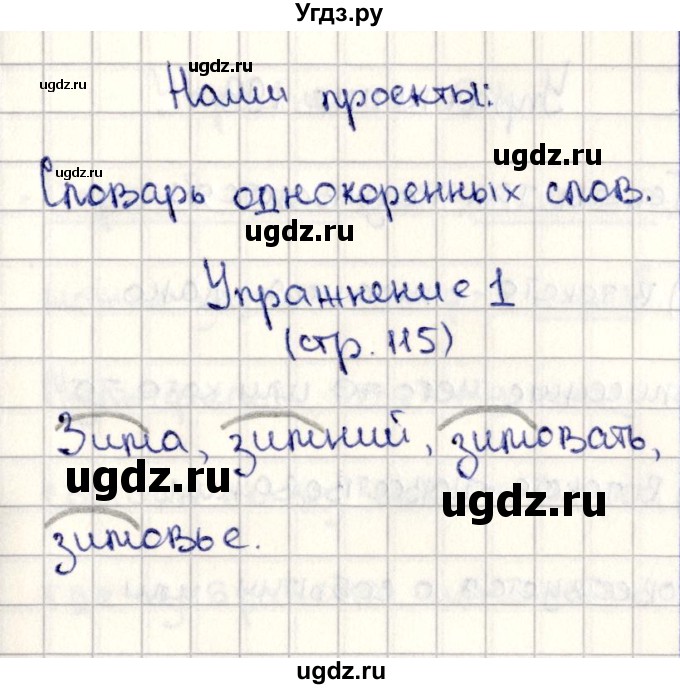 Угдз.ру
ugdz.ru
ugdz.ru
Наши проекты:
ugdz.ru
ugdz.ru
Словарь однокоренных слов.
ugdz.ru
Упражнение 1
(стр. 115)
Зима, зимний, зимовать,
ugdz.ru
ugdz.ru
зимовье.
ugdz.ru